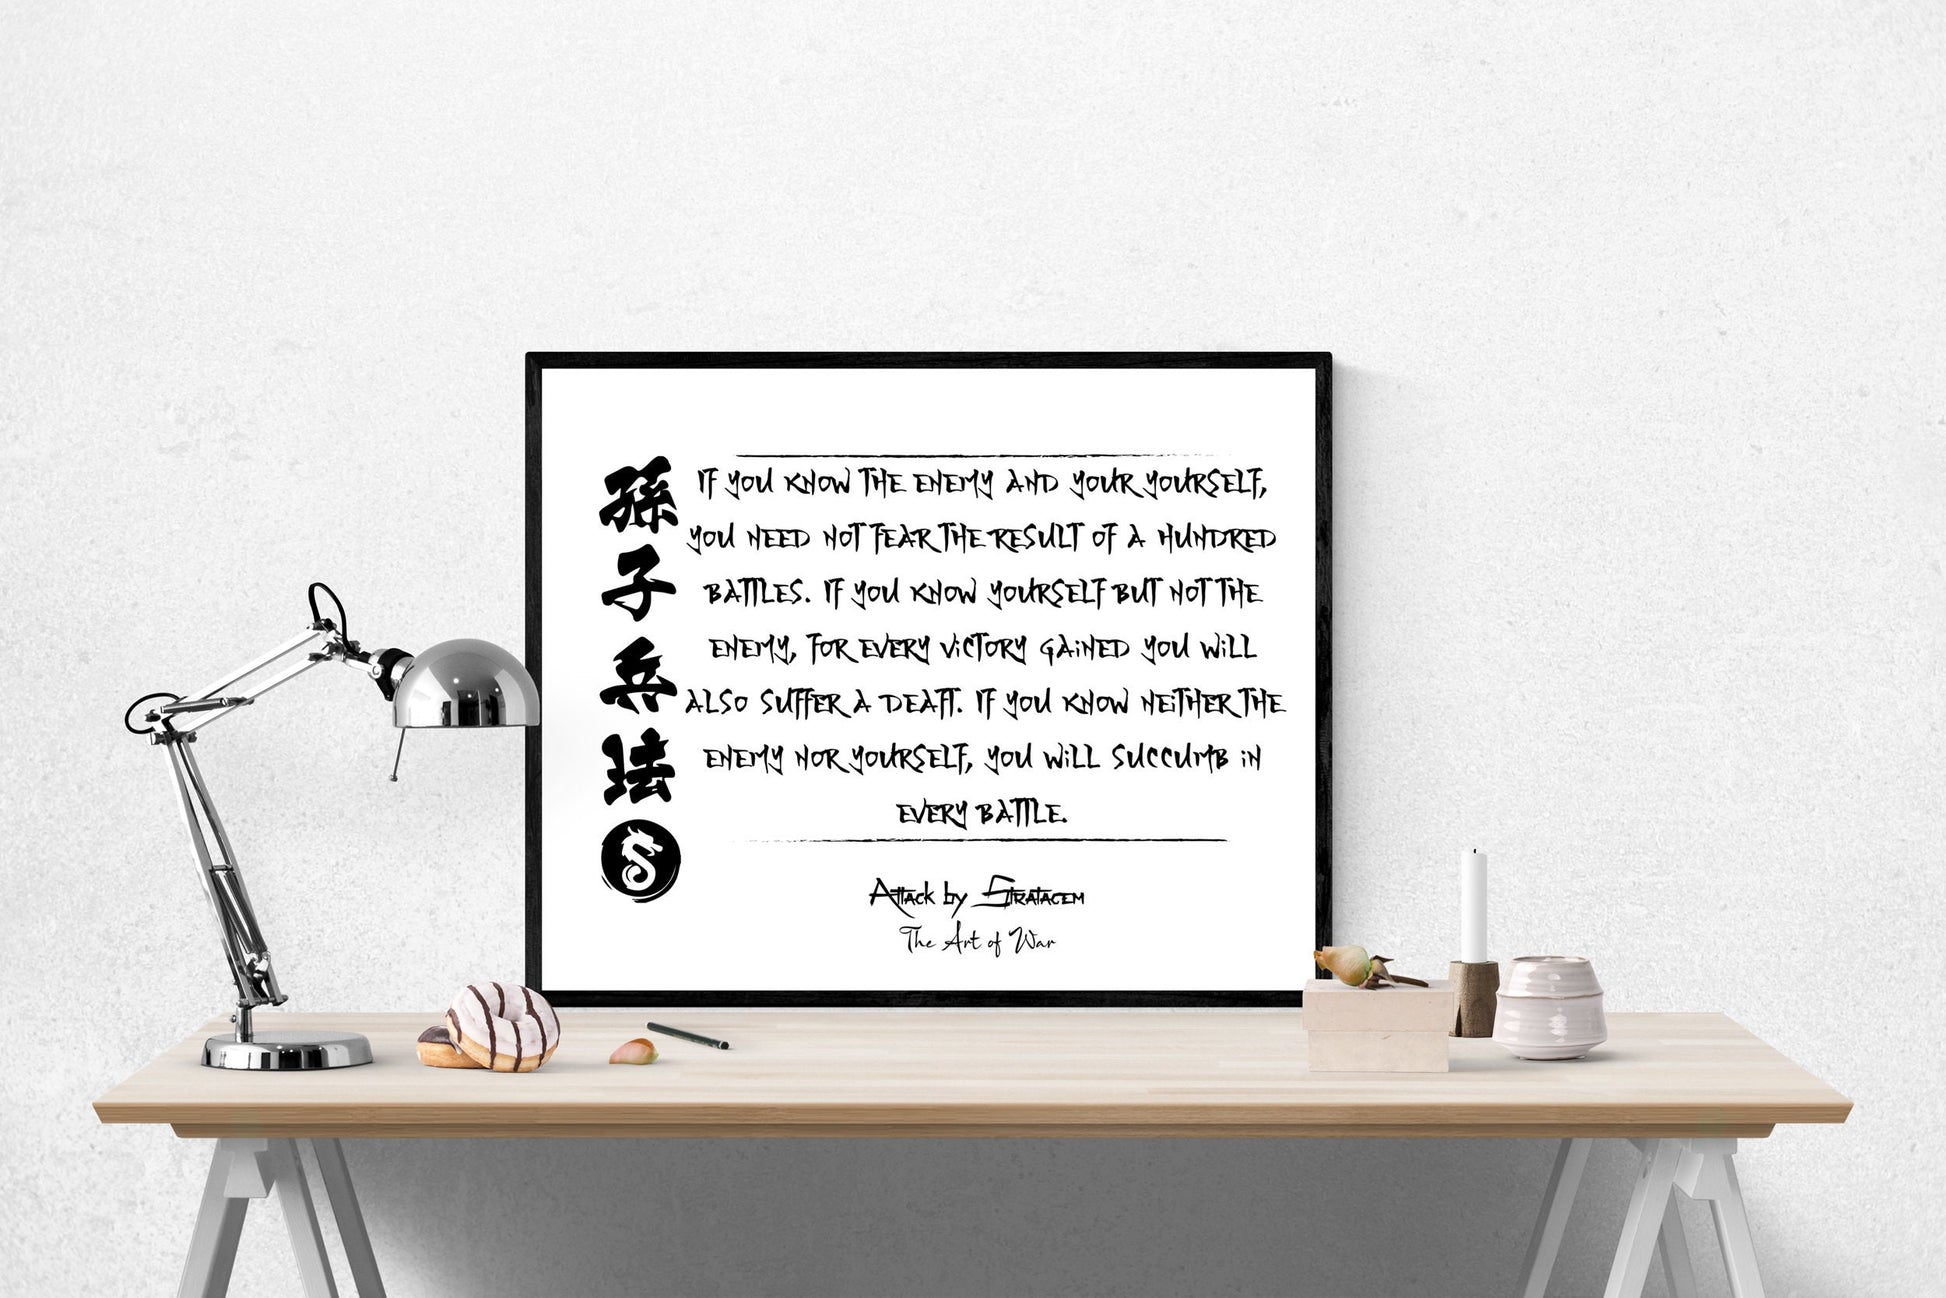 孫子兵法
IF YOU KNOW THE ENEMY AND YOUR YOURSELF,
YOU NEED NOT FEAR THE RESULT OF A HUNDRED
BATTLES. IF YOU KNOW YOURSELF BUT NOT THE
ENEMY, FOR EVERY VICTORY GAINED YOU WILL
ALSO SUFFER A DEAFT. IF YOU KNOW NEITHER THE
ENEMY NOR YOURSELF, YOU WILL SUCCUMB IN
EVERY BATTLE.
Attack by Stratagem
The Art of War